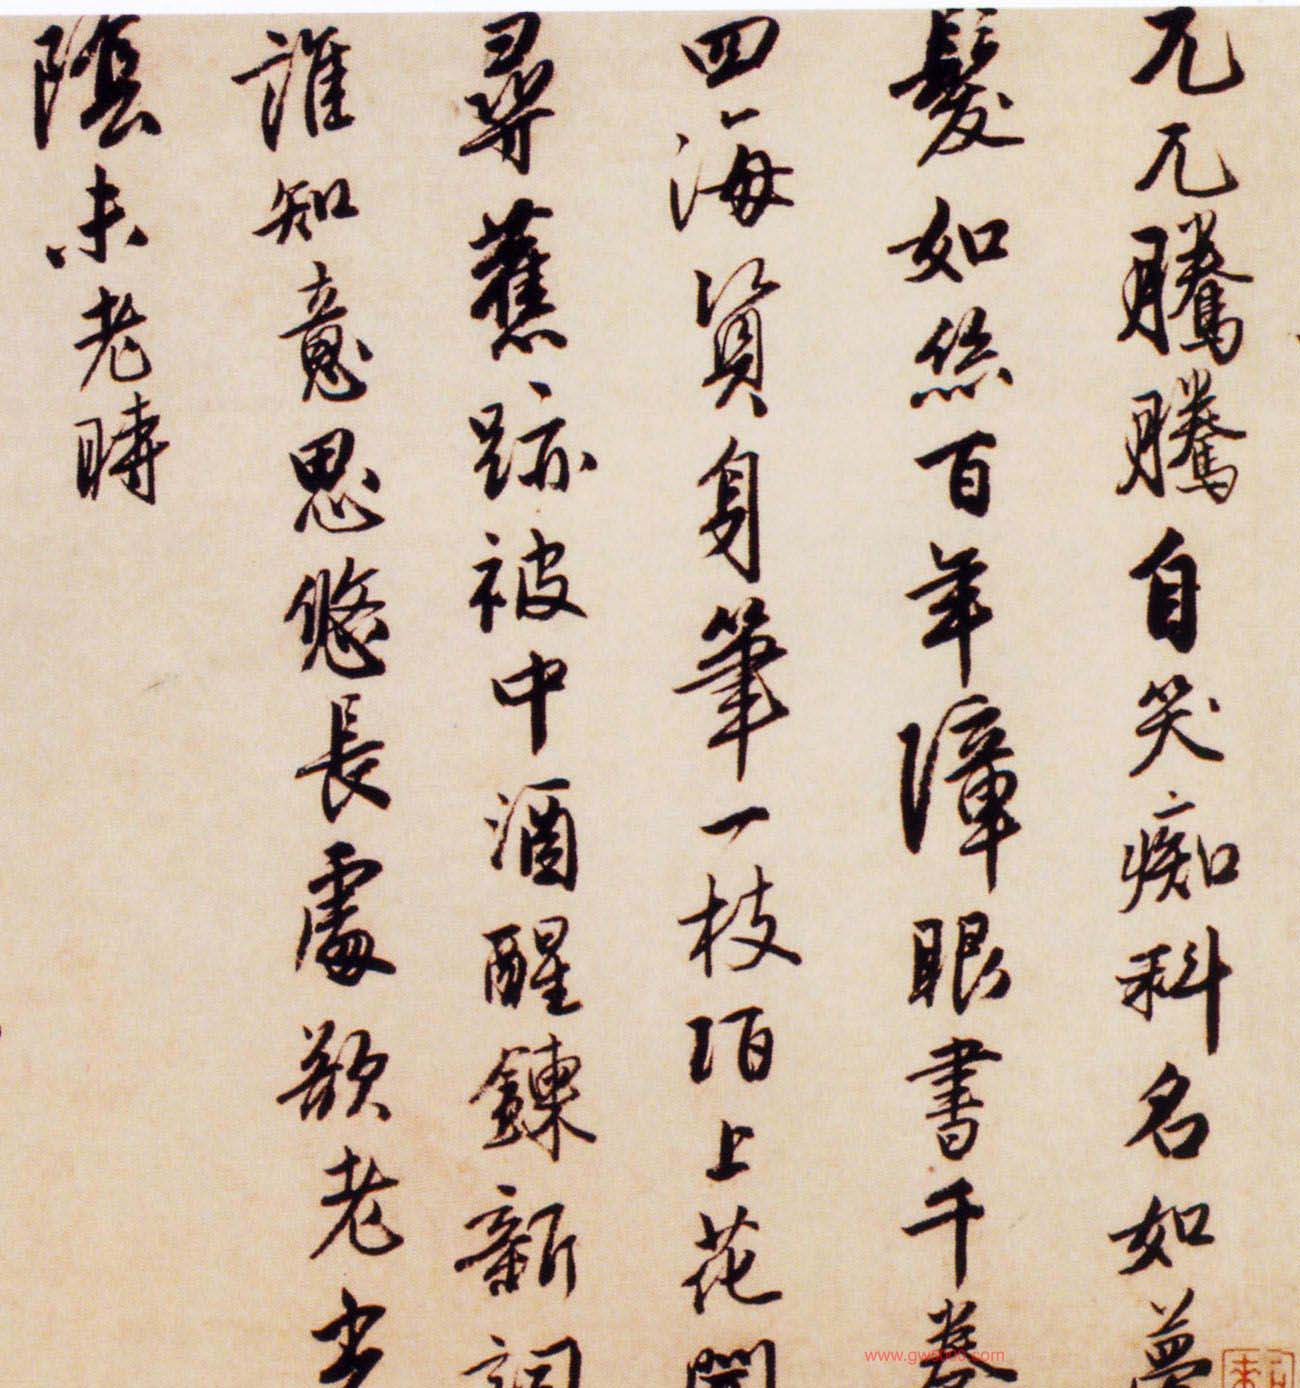 兀兀騰騰自笑痴科名如夢
髮如絲百年障眼書千卷
四海資身筆一枝陌上花開
尋舊跡被中酒醒鍊新詞
誰知意思悠長處欲老光
陰未老時
www.gw
.com